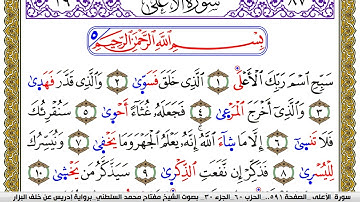 ٨٧ سورة الأعلى ١٩
بسم الله الرحمن الرحيم
سبح اسم ربك الأعلى ١ الذي خلق فسوى ٢ والذي قدر فهدى
٣ والذي أخرج المرعى ٤ فجعله غثاء أحوى ٥ سنقرئك
فلا تنسى ٦ إلا ما شاء الله إنه يعلم الجهر وما يخفى ٧ ونيسرك
لليسرى ٨ فذكر إن نفعت الذكرى ٩ سيذكر من يخشى ١٠
سورة الأعلى - الصفحة ٥٩١ - الحزب ٦٠ - الجزء ٣٠ - بصوت الشيخ مفتاح محمد السلطني - برواية إدريس عن خلف البزار